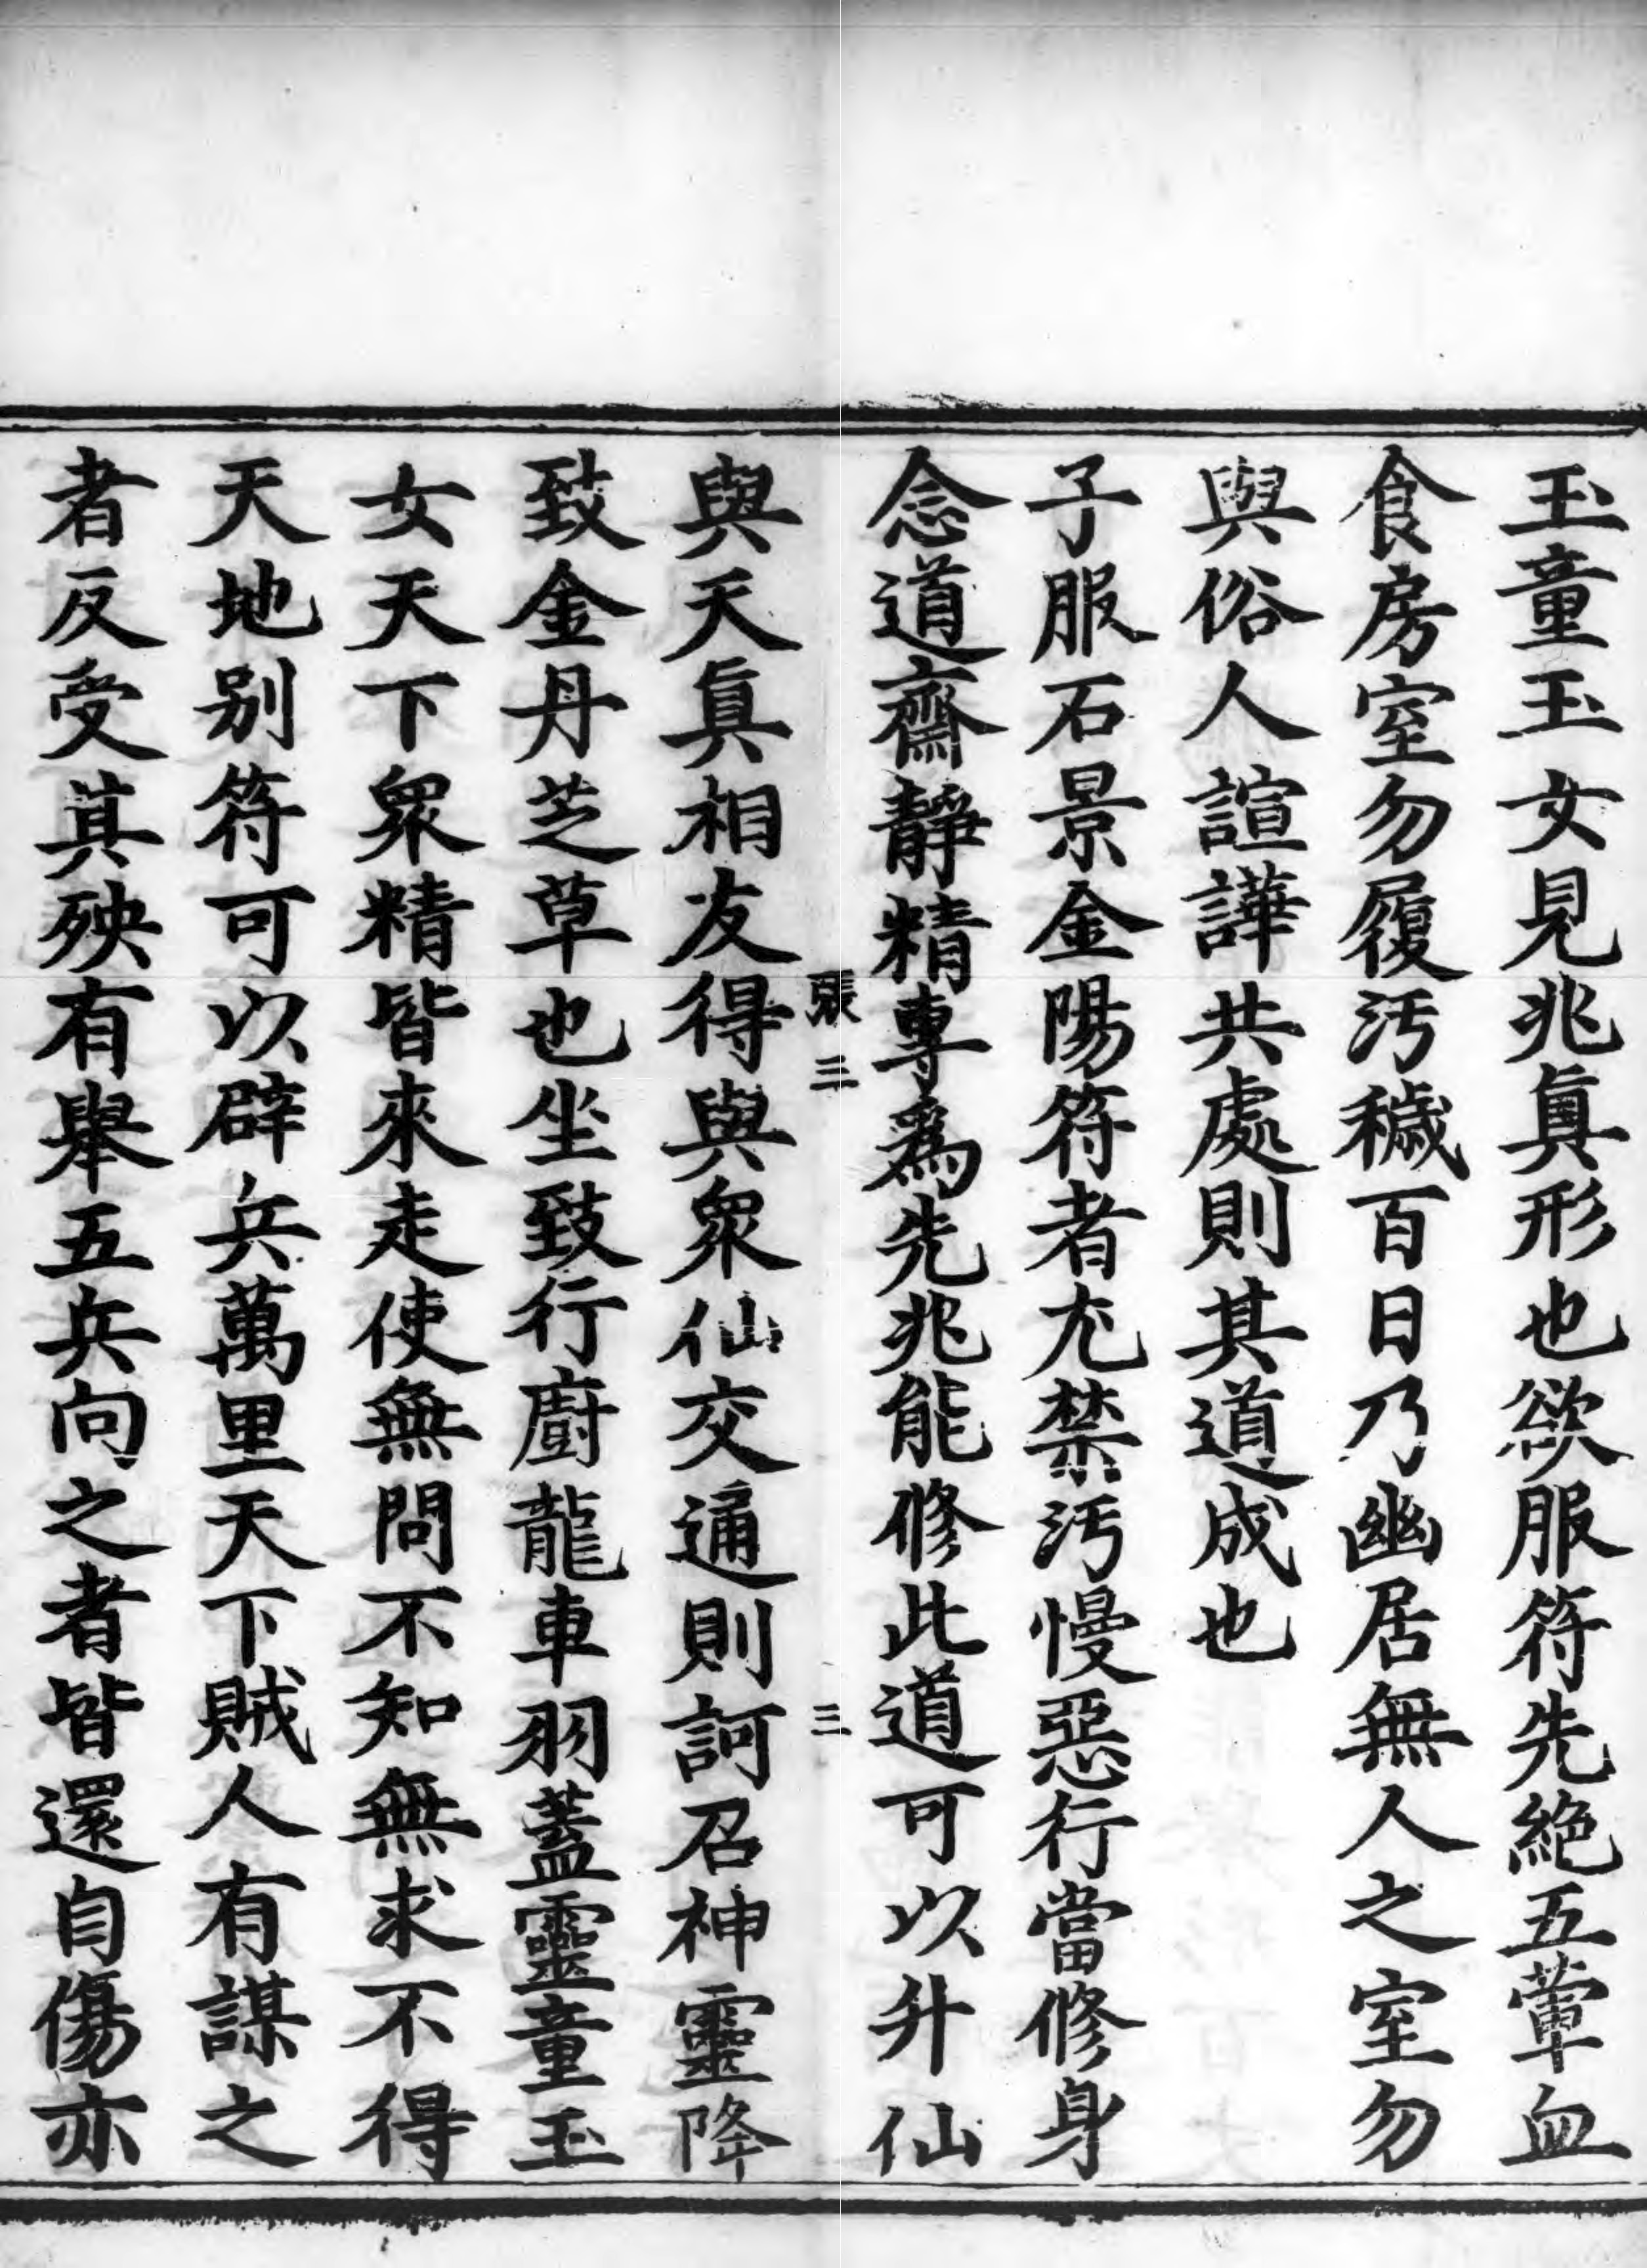 玉童玉女見兆真形也欲服符先絶五葷血
食房室勿履汚穢百日乃幽居無人之室勿
與俗人諠譁共處則其道成也
子服石景金陽符者尤禁汚慢惡行當修身
念道齋靜精專爲先兆能修此道可以升仙
張三 三
與天眞相友得與衆仙交通則訶召神靈降
致金丹芝草也坐致行廚龍車羽蓋靈童玉
女天下衆精皆來走使無問不知無求不得
天地别符可以辟兵萬里天下賊人有謀之
者反受其殃有舉五兵向之者皆還自傷亦